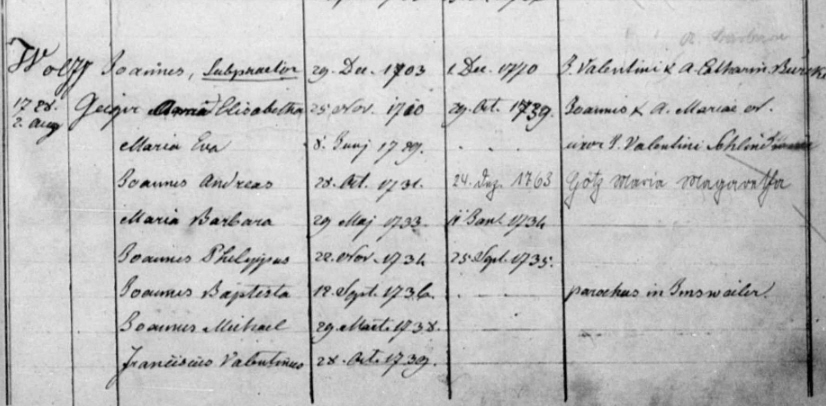 Wolff Joannes, Subpraetor 29. Dec. 1703 1 Dec. 1770 J. Valentini & A. Catharin
1728. 2. Aug Geeger Elisabetha 25 Nov. 1710 29. Oct. 1739. Joannis & A. Mariae
Maria Eva 8. Junj 1729. . . uxor J. Valentini
Joannes Andreas 28. Oct. 1731. 24. Dez. 1763 Götz Maria Magaretha
Maria Barbara 29 Maj 1733. 1734
Joannes Philippus 22. Nov. 1734 25 Sept. 1735.
Joannes Baptista 12. Sept. 1736. . . parochus in Imsweiler.
Joannes Michael 29. Mart. 1738.
Franciscus Valentinus 28. Oct. 1739.